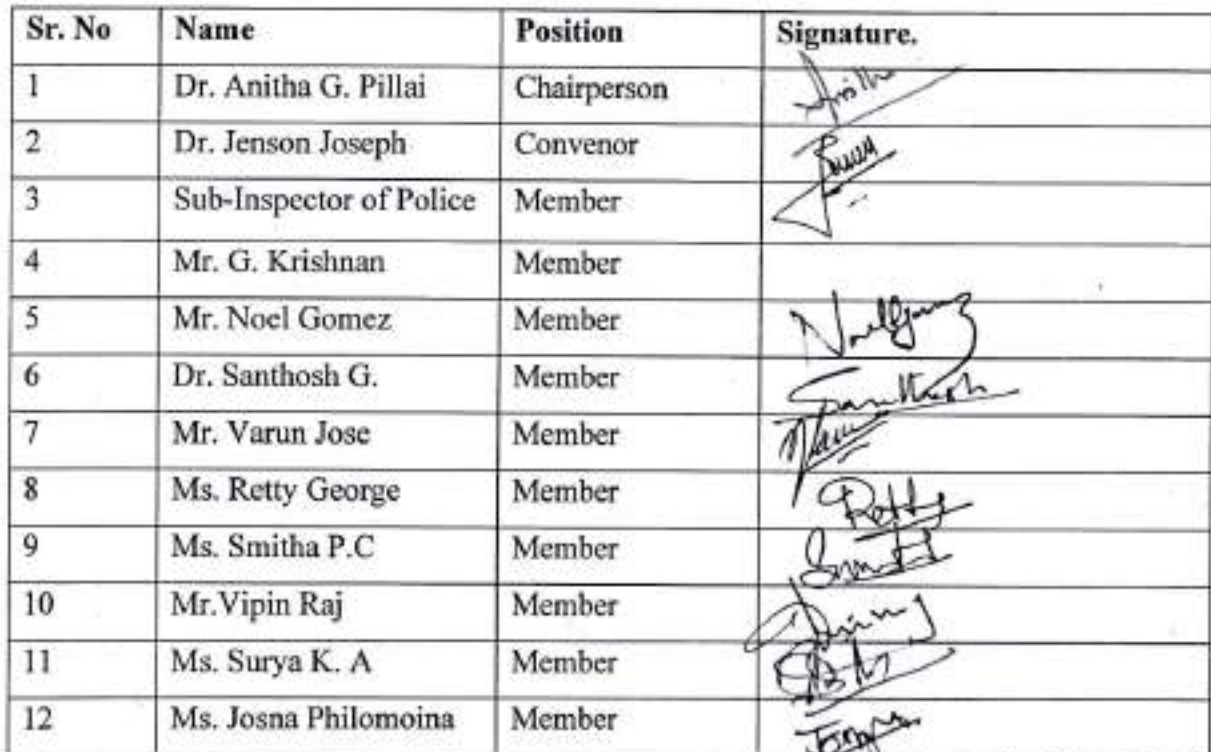 Sr. No Name Position Signature.
1 Dr. Anitha G. Pillai Chairperson Anitha
2 Dr. Jenson Joseph Convenor
3 Sub-Inspector of Police Member
4 Mr. G. Krishnan Member
5 Mr. Noel Gomez Member NoelGomez
6 Dr. Santhosh G. Member Santhosh
7 Mr. Varun Jose Member
8 Ms. Retty George Member Retty
9 Ms. Smitha P.C Member
10 Mr.Vipin Raj Member
11 Ms. Surya K. A Member
12 Ms. Josna Philomoina Member